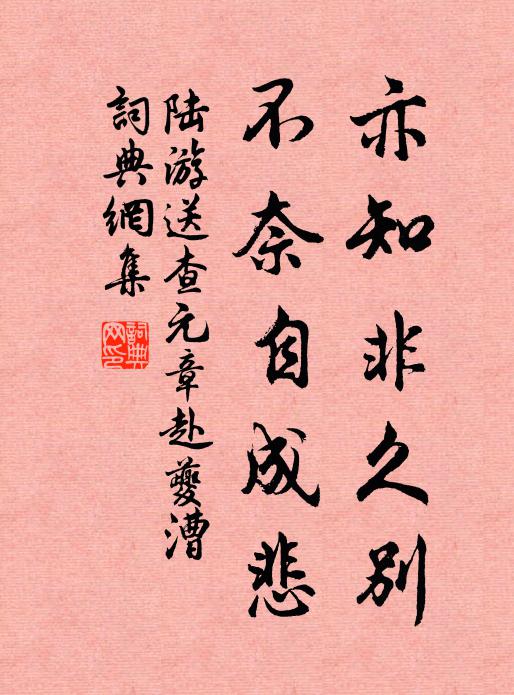 亦知非久别
不奈自成悲
陆游送查元章赴夔漕
詞典網集
詞典网印